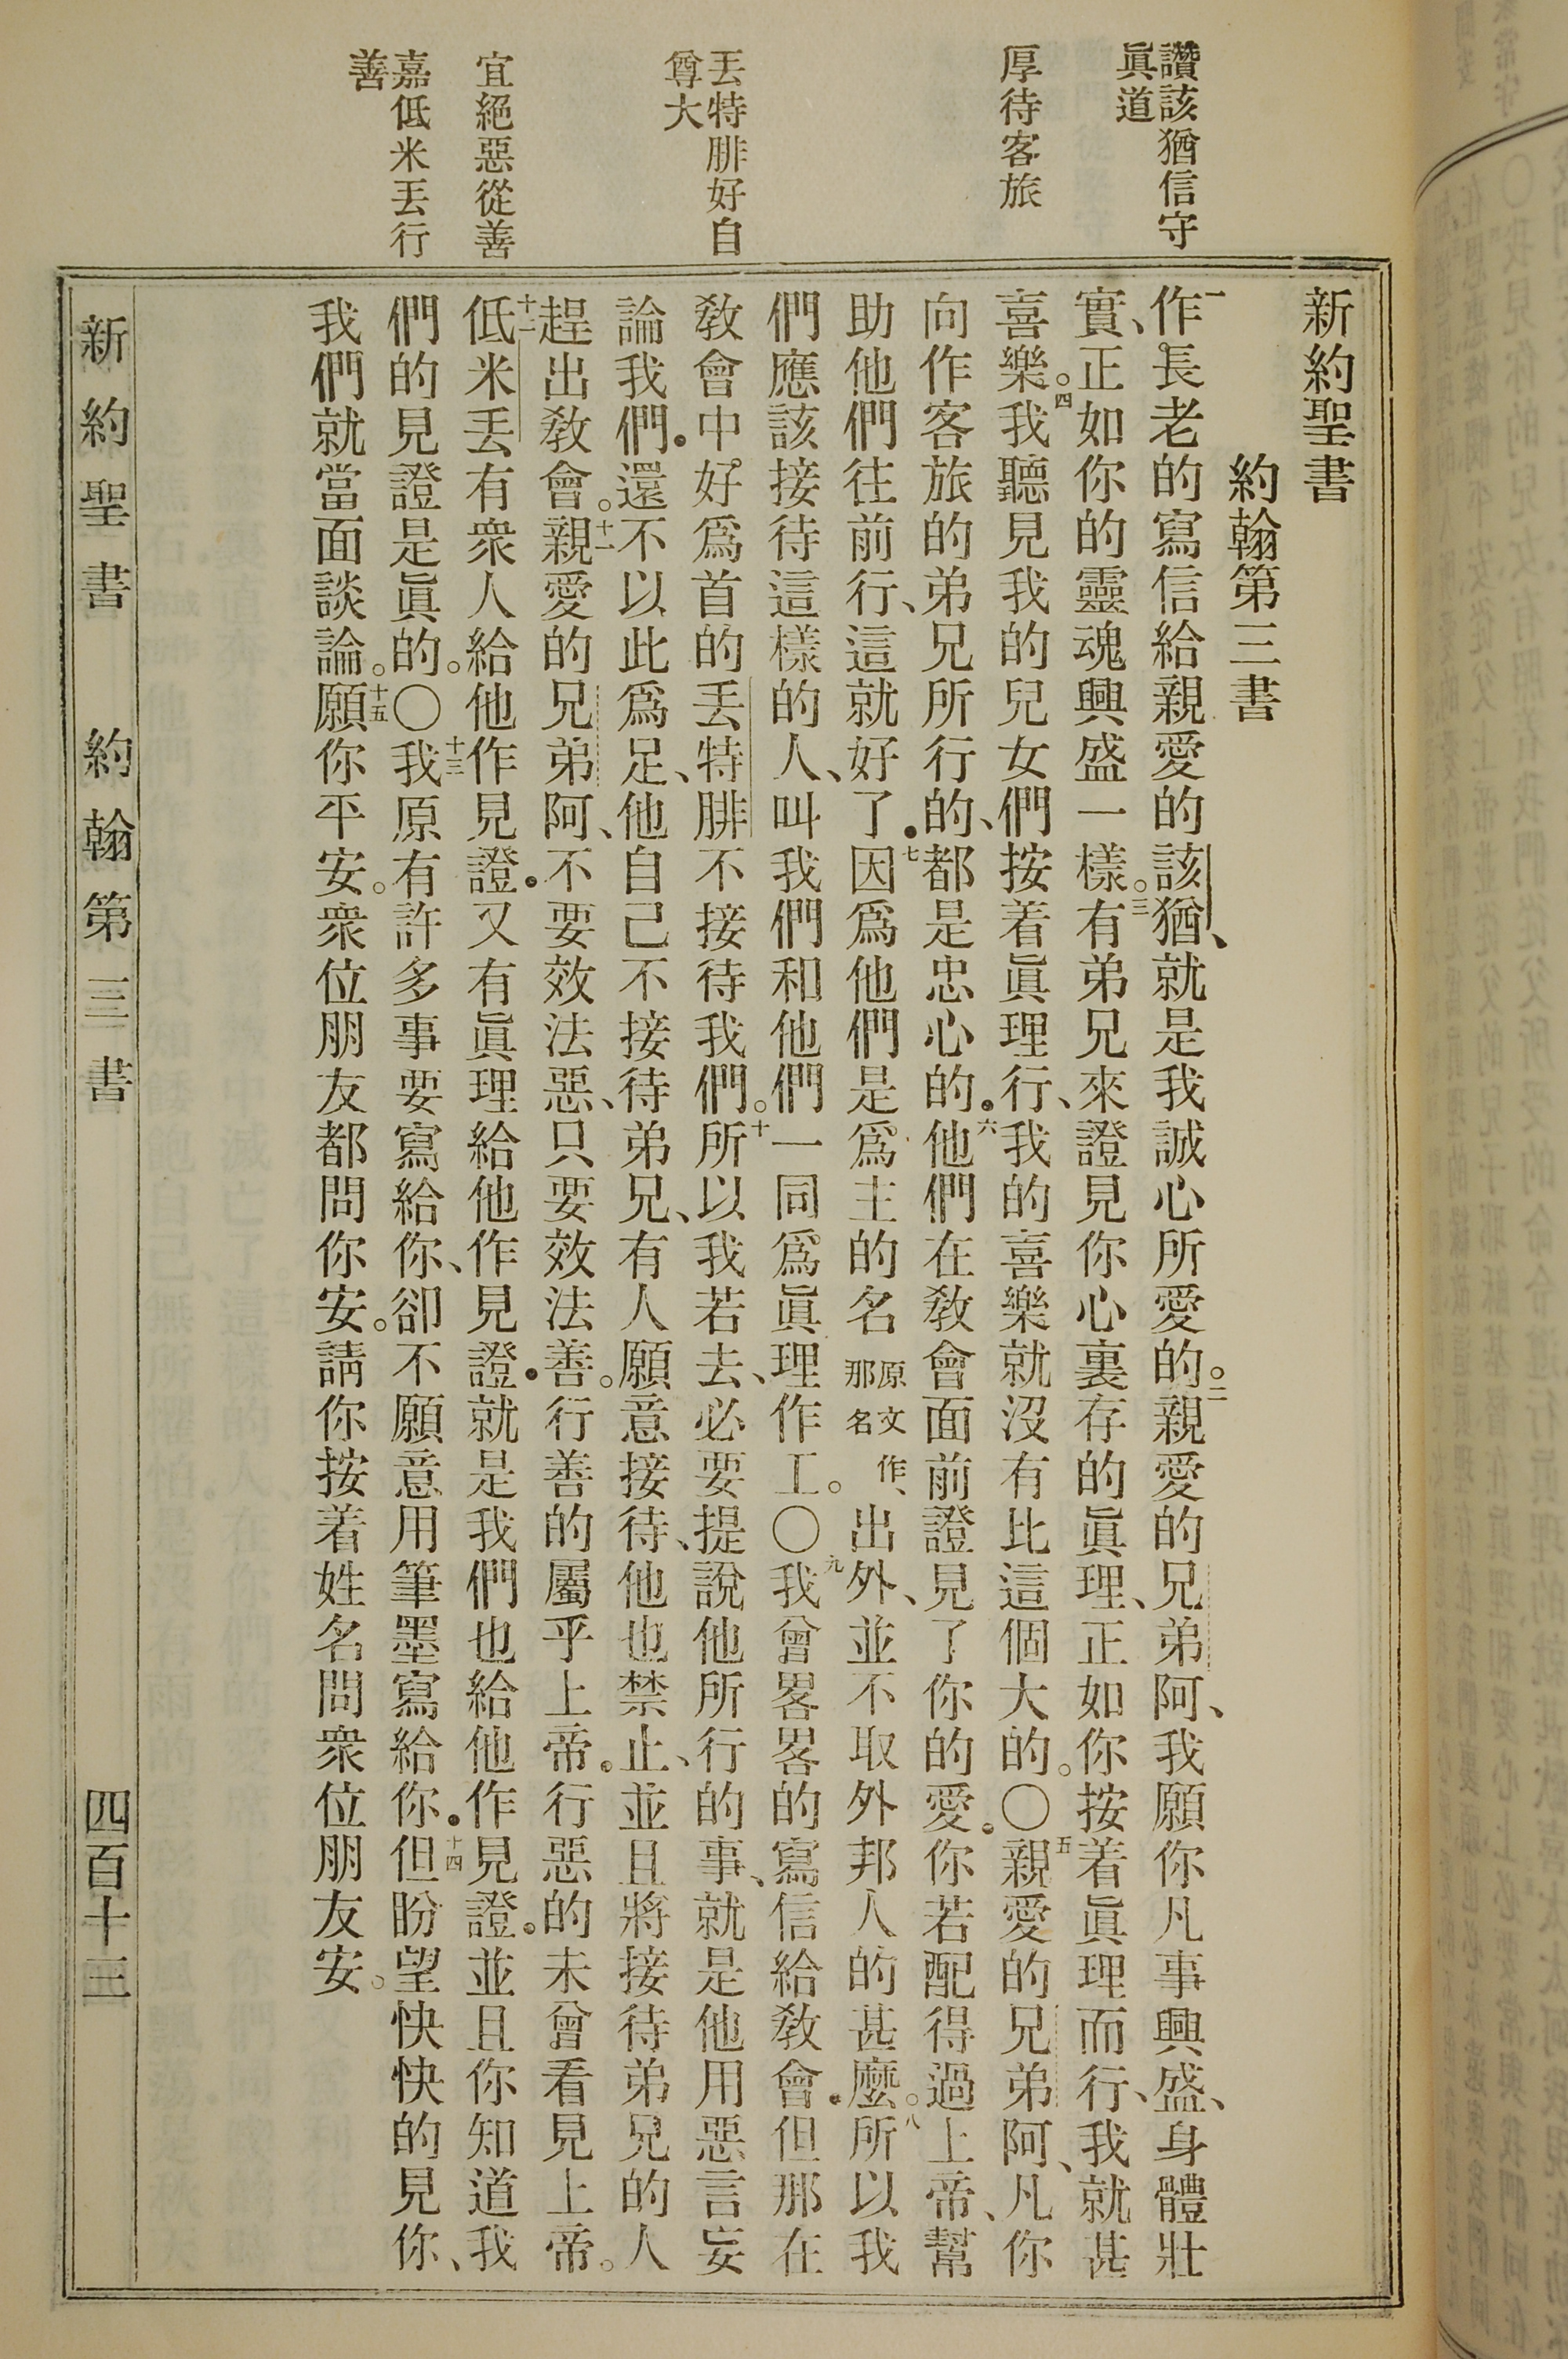 讚該猶信守
眞道
厚待客旅
丟特腓好自
尊大
宜絕惡從善
嘉低米丟行
善
新約聖書
約翰第三書
一作長老的寫信給親愛的該猶、就是我誠心所愛的。二親愛的兄弟阿、我願你凡事興盛、身體壯
實、正如你的靈魂興盛一樣。三有弟兄來證見你心裏存的眞理、正如你按着眞理而行、我就甚
喜樂。四我聽見我的兒女們按着眞理行、我的喜樂就沒有比這個大的。〇五親愛的兄弟阿、凡你
向作客旅的弟兄所行的、都是忠心的。六他們在教會面前證見了你的愛。你若配得過上帝、幫
助他們往前行、這就好了。七因爲他們是爲主的名原文作、那名出外、並不取外邦人的甚麼。八所以我
們應該接待這樣的人、叫我們和他們一同爲眞理作工。〇九我曾畧畧的寫信給教會。但那在
教會中好爲首的丟特腓不接待我們。十所以我若去、必要提說他所行的事、就是他用惡言妄
論我們。還不以此爲足、他自己不接待弟兄、有人願意接待、他也禁止、並且將接待弟兄的人
趕出教會。十一親愛的兄弟阿、不要效法惡、只要效法善。行善的屬乎上帝。行惡的未曾看見上帝。
十二低米丟有衆人給他作見證。又有眞理給他作見證。就是我們也給他作見證。並且你知道我
們的見證是眞的。〇十三我原有許多事要寫給你、卻不願意用筆墨寫給你。十四但盼望快快的見你、
我們就當面談論。十五願你平安。衆位朋友都問你安。請你按着姓名問衆位朋友安。
新約聖書 約翰第三書 四百十三